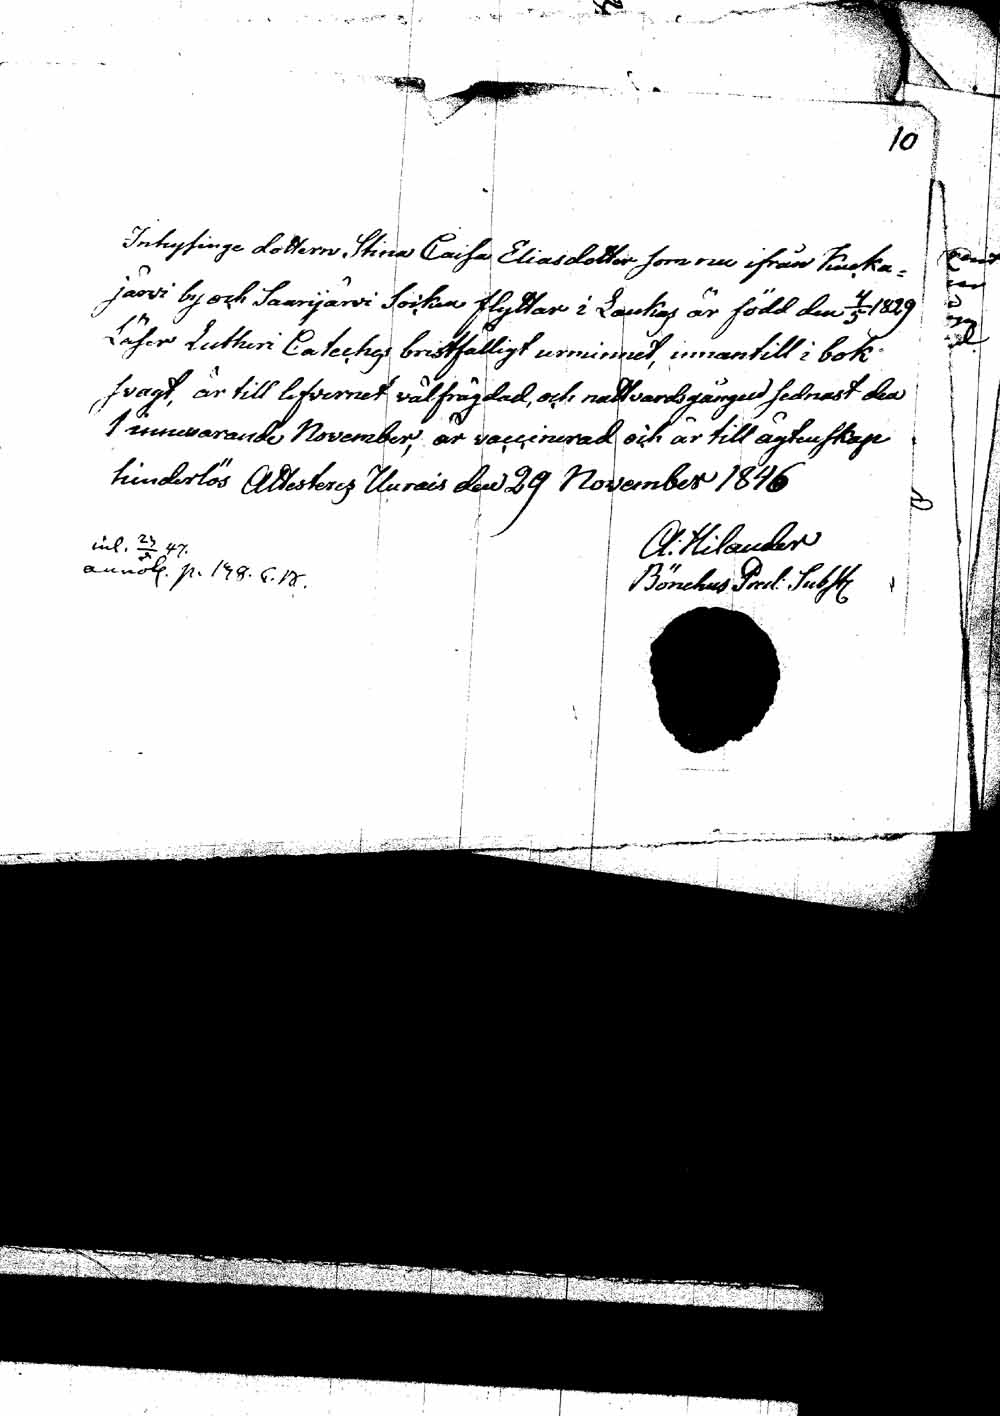 10
Inhysinge dottern Stina Caisa Eliasdotter som nu ifrån Kuoka=
järvi by och Saarijärvi Socken flyttar i Laukas är född den 4/5 1829
Läser Lutheri Cateches bristfälligt urminnet, innantill i bok
svagt, är till lefvernet välfrägdad, och nattvardsgången sednast den
1 innevarande November, är vaccinerad och är till ägtenskap
hinderlös Attesteras Uurais den 29 November 1846
Al: Hilander
Bönehus Pred: Subst
inl. 47.
annot. p. 148.